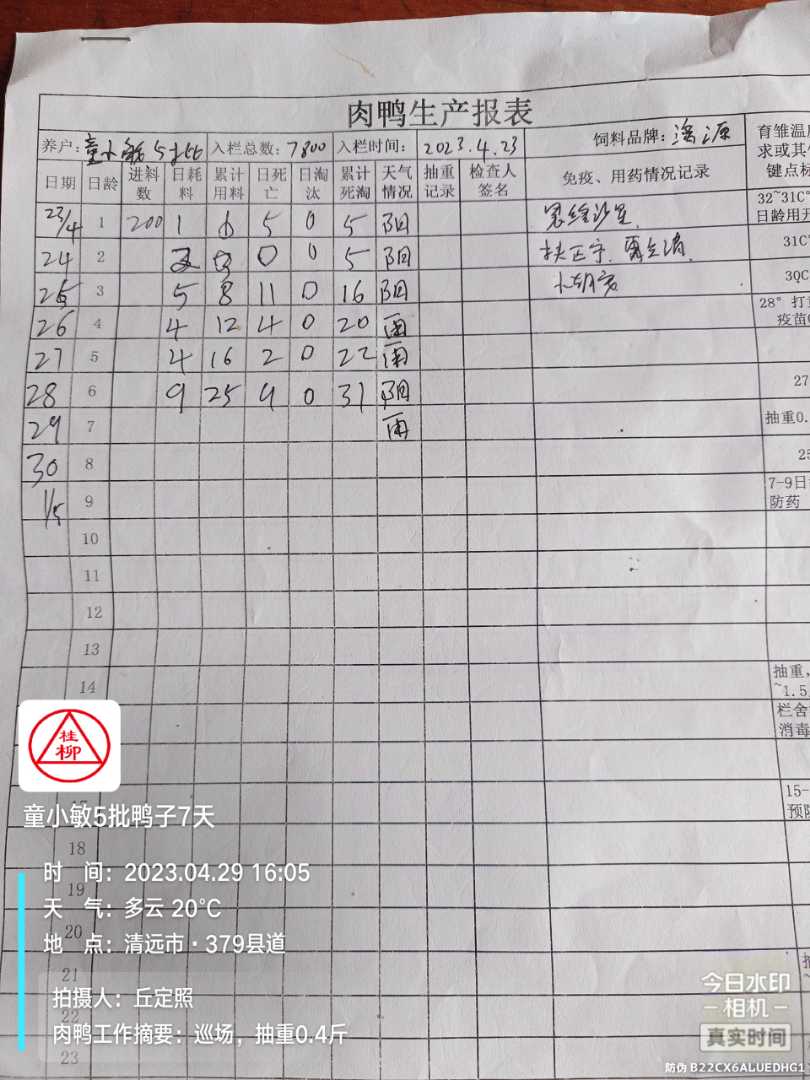 肉鸭生产报表
养户：童小敏5批 入栏总数：7800 入栏时间：2023.4.23 饲料品牌： 育雏温
求或其
键点标
日期 日龄 进料数 日耗料 累计用料 日死亡 日淘汰 累计死淘 天气情况 抽重记录 检查人签名 免疫、用药情况记录
23/4 1 200 1 5 0 5 阳 32~31C°
日龄用
24 2 0 0 5 阳 31C°
25 3 5 8 11 0 16 阳 3QC
26 4 4 12 4 0 20 雨 28°打
疫苗
27 5 4 16 2 0 22 雨
28 6 9 25 9 0 31 阳 27
29 7 雨 抽重0.
30 8 25
1/5 9 7-9日
防药
10
11
12
13
14 抽重，
~1.5
栏舍
消毒
桂柳
15-
预防
童小敏5批鸭子7天
18
时 间：2023.04.29 16:05
19
天 气：多云 20℃
20
地 点：清远市·379县道
21
拍摄人：丘定照
22
肉鸭工作摘要：巡场，抽重0.4斤
23
今日水印
相机
真实时间
防伪 B22CX6ALUEDHG1